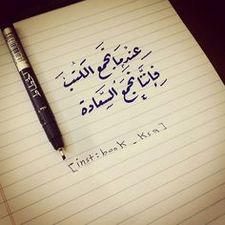 عِندما نجمع الكتب
فإننا نجمع السعادة
[inst:book_ksa]